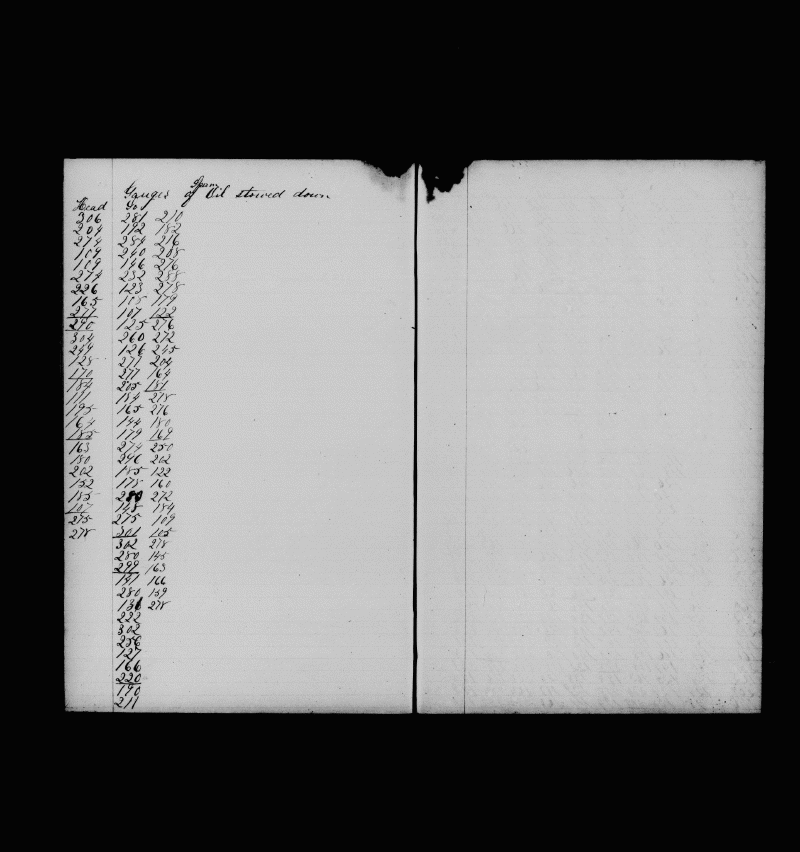 Gauges of Sperm Oil stowed down
Head Do
306 281 210
204 192 182
274 284 216
109 240 208
109 146 276
274 232 288
226 123 278
165 105 179
277 107 122
290 125 276
304 260 272
249 126 245
128 271 204
170 277 164
184 205 181
111 184 278
195 165 276
164 144 180
185 179 169
163 274 250
180 246 202
202 185 122
152 178 160
185 280 272
107 148 184
275 275 109
278 301 105
302 278
280 145
299 163
147 166
280 159
136 278
222
302
256
127
166
220
190
211